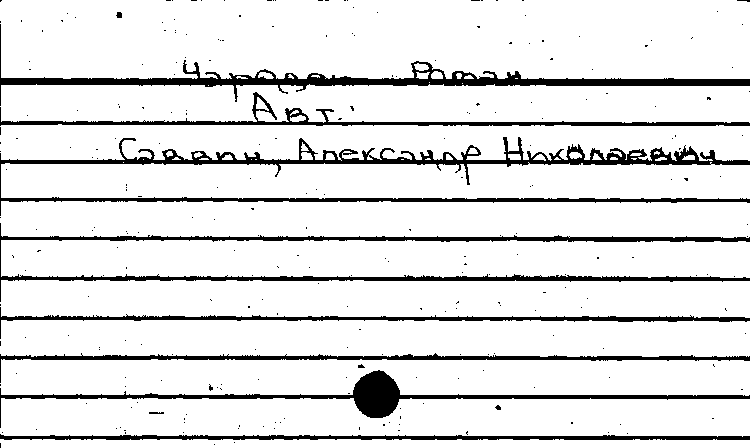 Чародеи Роман
Авт.:
Саввин, Александр Николаевич